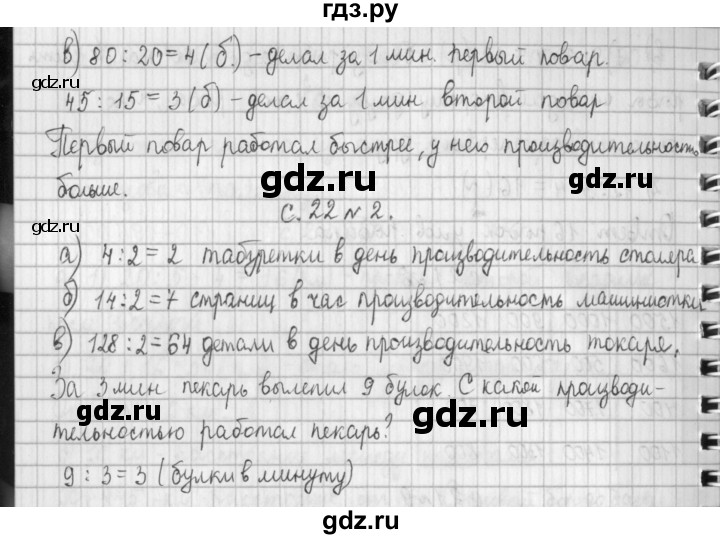 гдз.ру
в) 80 : 20 = 4 (б.) – делал за 1 мин. первый повар.
gdz.ru
45 : 15 = 3 (б) – делал за 1 мин второй повар
Первый повар работал быстрее, у него производительность
больше.
gdz.ru
gdz.ru
С. 22 № 2.
gdz.ru
а) 4 : 2 = 2 табуретки в день производительность столяра
б) 14 : 2 = 7 страниц в час производительность машинистки
в) 128 : 2 = 64 детали в день производительность токаря.
gdz.ru
За 3 мин пекарь вылепил 9 булок. С какой производи-
gdz.ru
тельностью работал пекарь?
9 : 3 = 3 (булки в минуту)
gdz.ru
gdz.ru